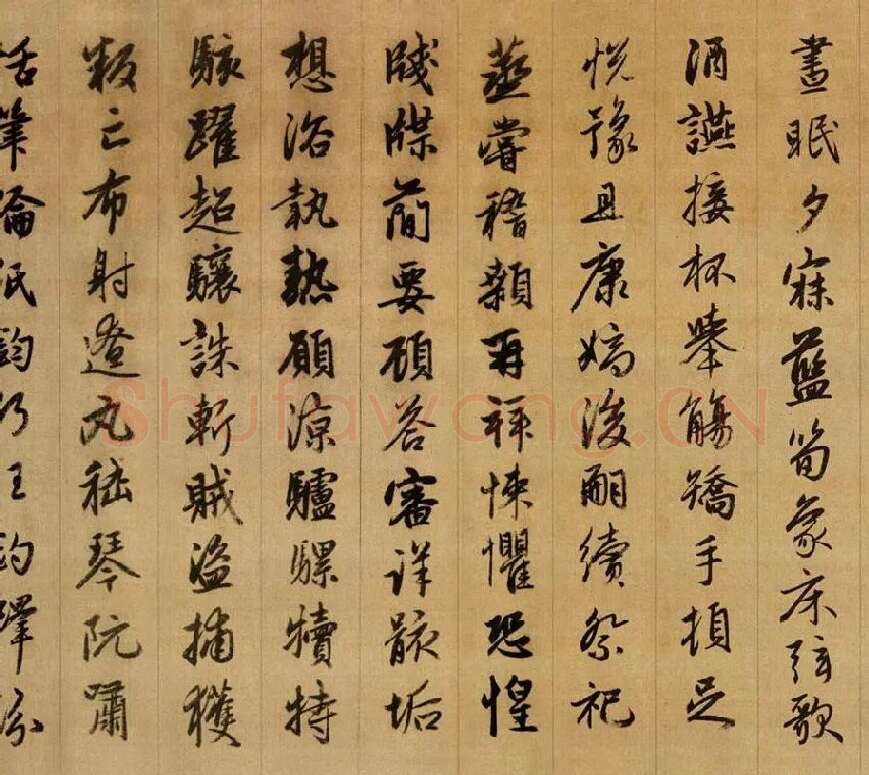 晝眠夕寐藍筍象床弦歌
酒讌接杯舉觴矯手頓足
悅豫且康嫡後嗣續祭祀
蒸嘗稽顙再拜悚懼恐惶
牋牒簡要顧答審詳骸垢
想浴執熱願涼驢騾犢特
駭躍超驤誅斬賊盜捕獲
叛亡布射遼丸嵇琴阮嘯
恬筆倫紙鈞巧任釣釋紛
Shufawang.CN